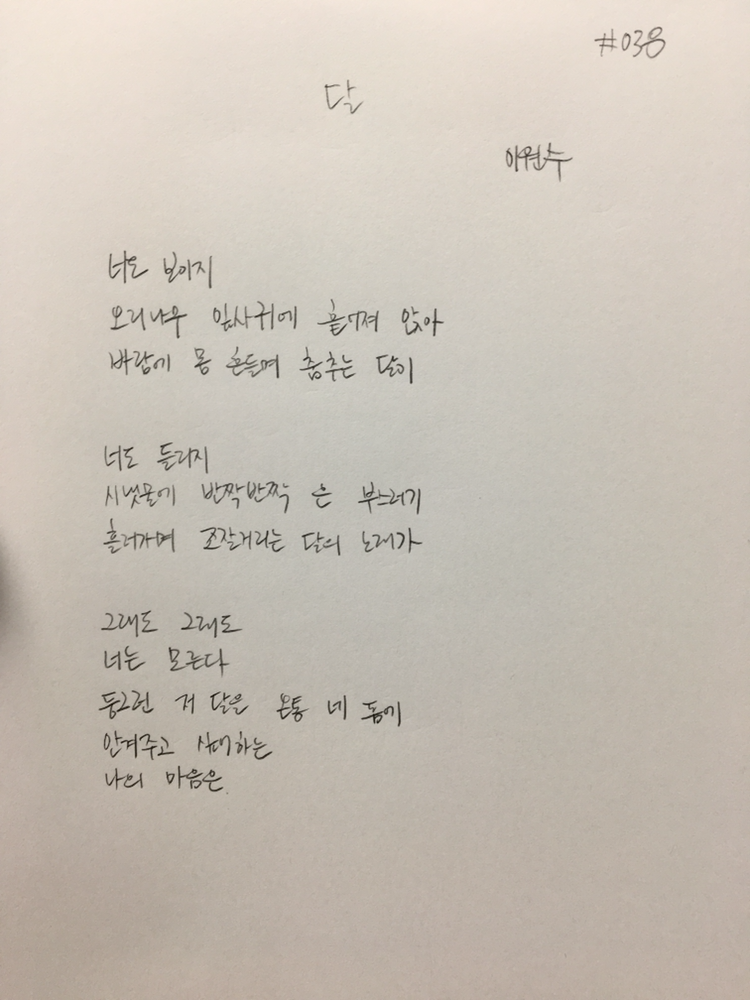 #038
달
이원수
너도 보이지
오리나무 잎사귀에 흩어져 앉아
바람에 몸 흔들며 춤추는 달이
너도 들리지
시냇물에 반짝반짝 은 부스러기
흘러가며 조잘거리는 달의 노래가
그래도 그래도
너는 모른다
둥그런 저 달을 온통 네 품에
안겨주고 싶어하는
나의 마음은.